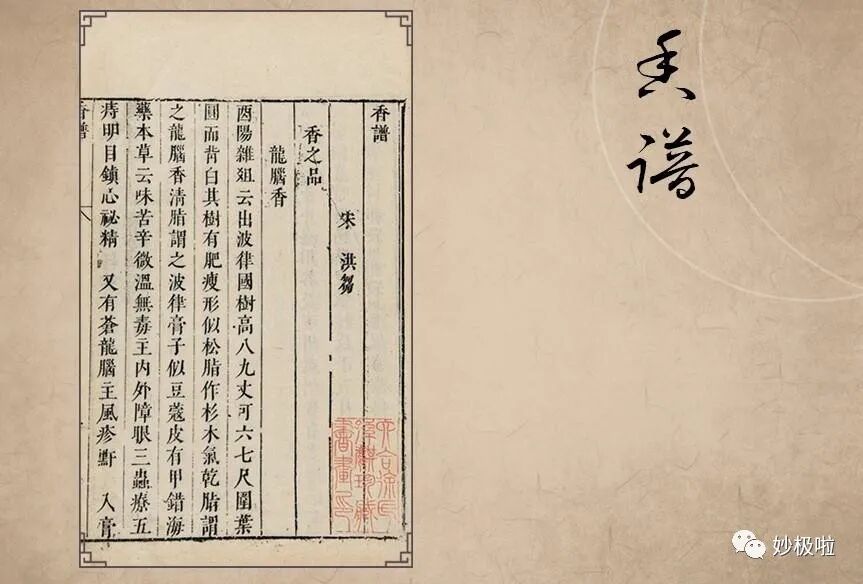 香谱
香譜
宋 洪芻
香之品
龍腦香
酉陽雜俎云出波律國樹高八九丈可六七尺圍葉
圓而背白其樹有肥瘦形似松脂作杉木氣乾脂謂
之龍腦香清脂謂之波律膏子似豆蔻皮有甲錯海
藥本草云味苦辛微溫無毒主內外障眼三蟲療五
痔明目鎮心祕精 又有蒼龍腦主風疹䵟 入膏
香譜
妙极啦